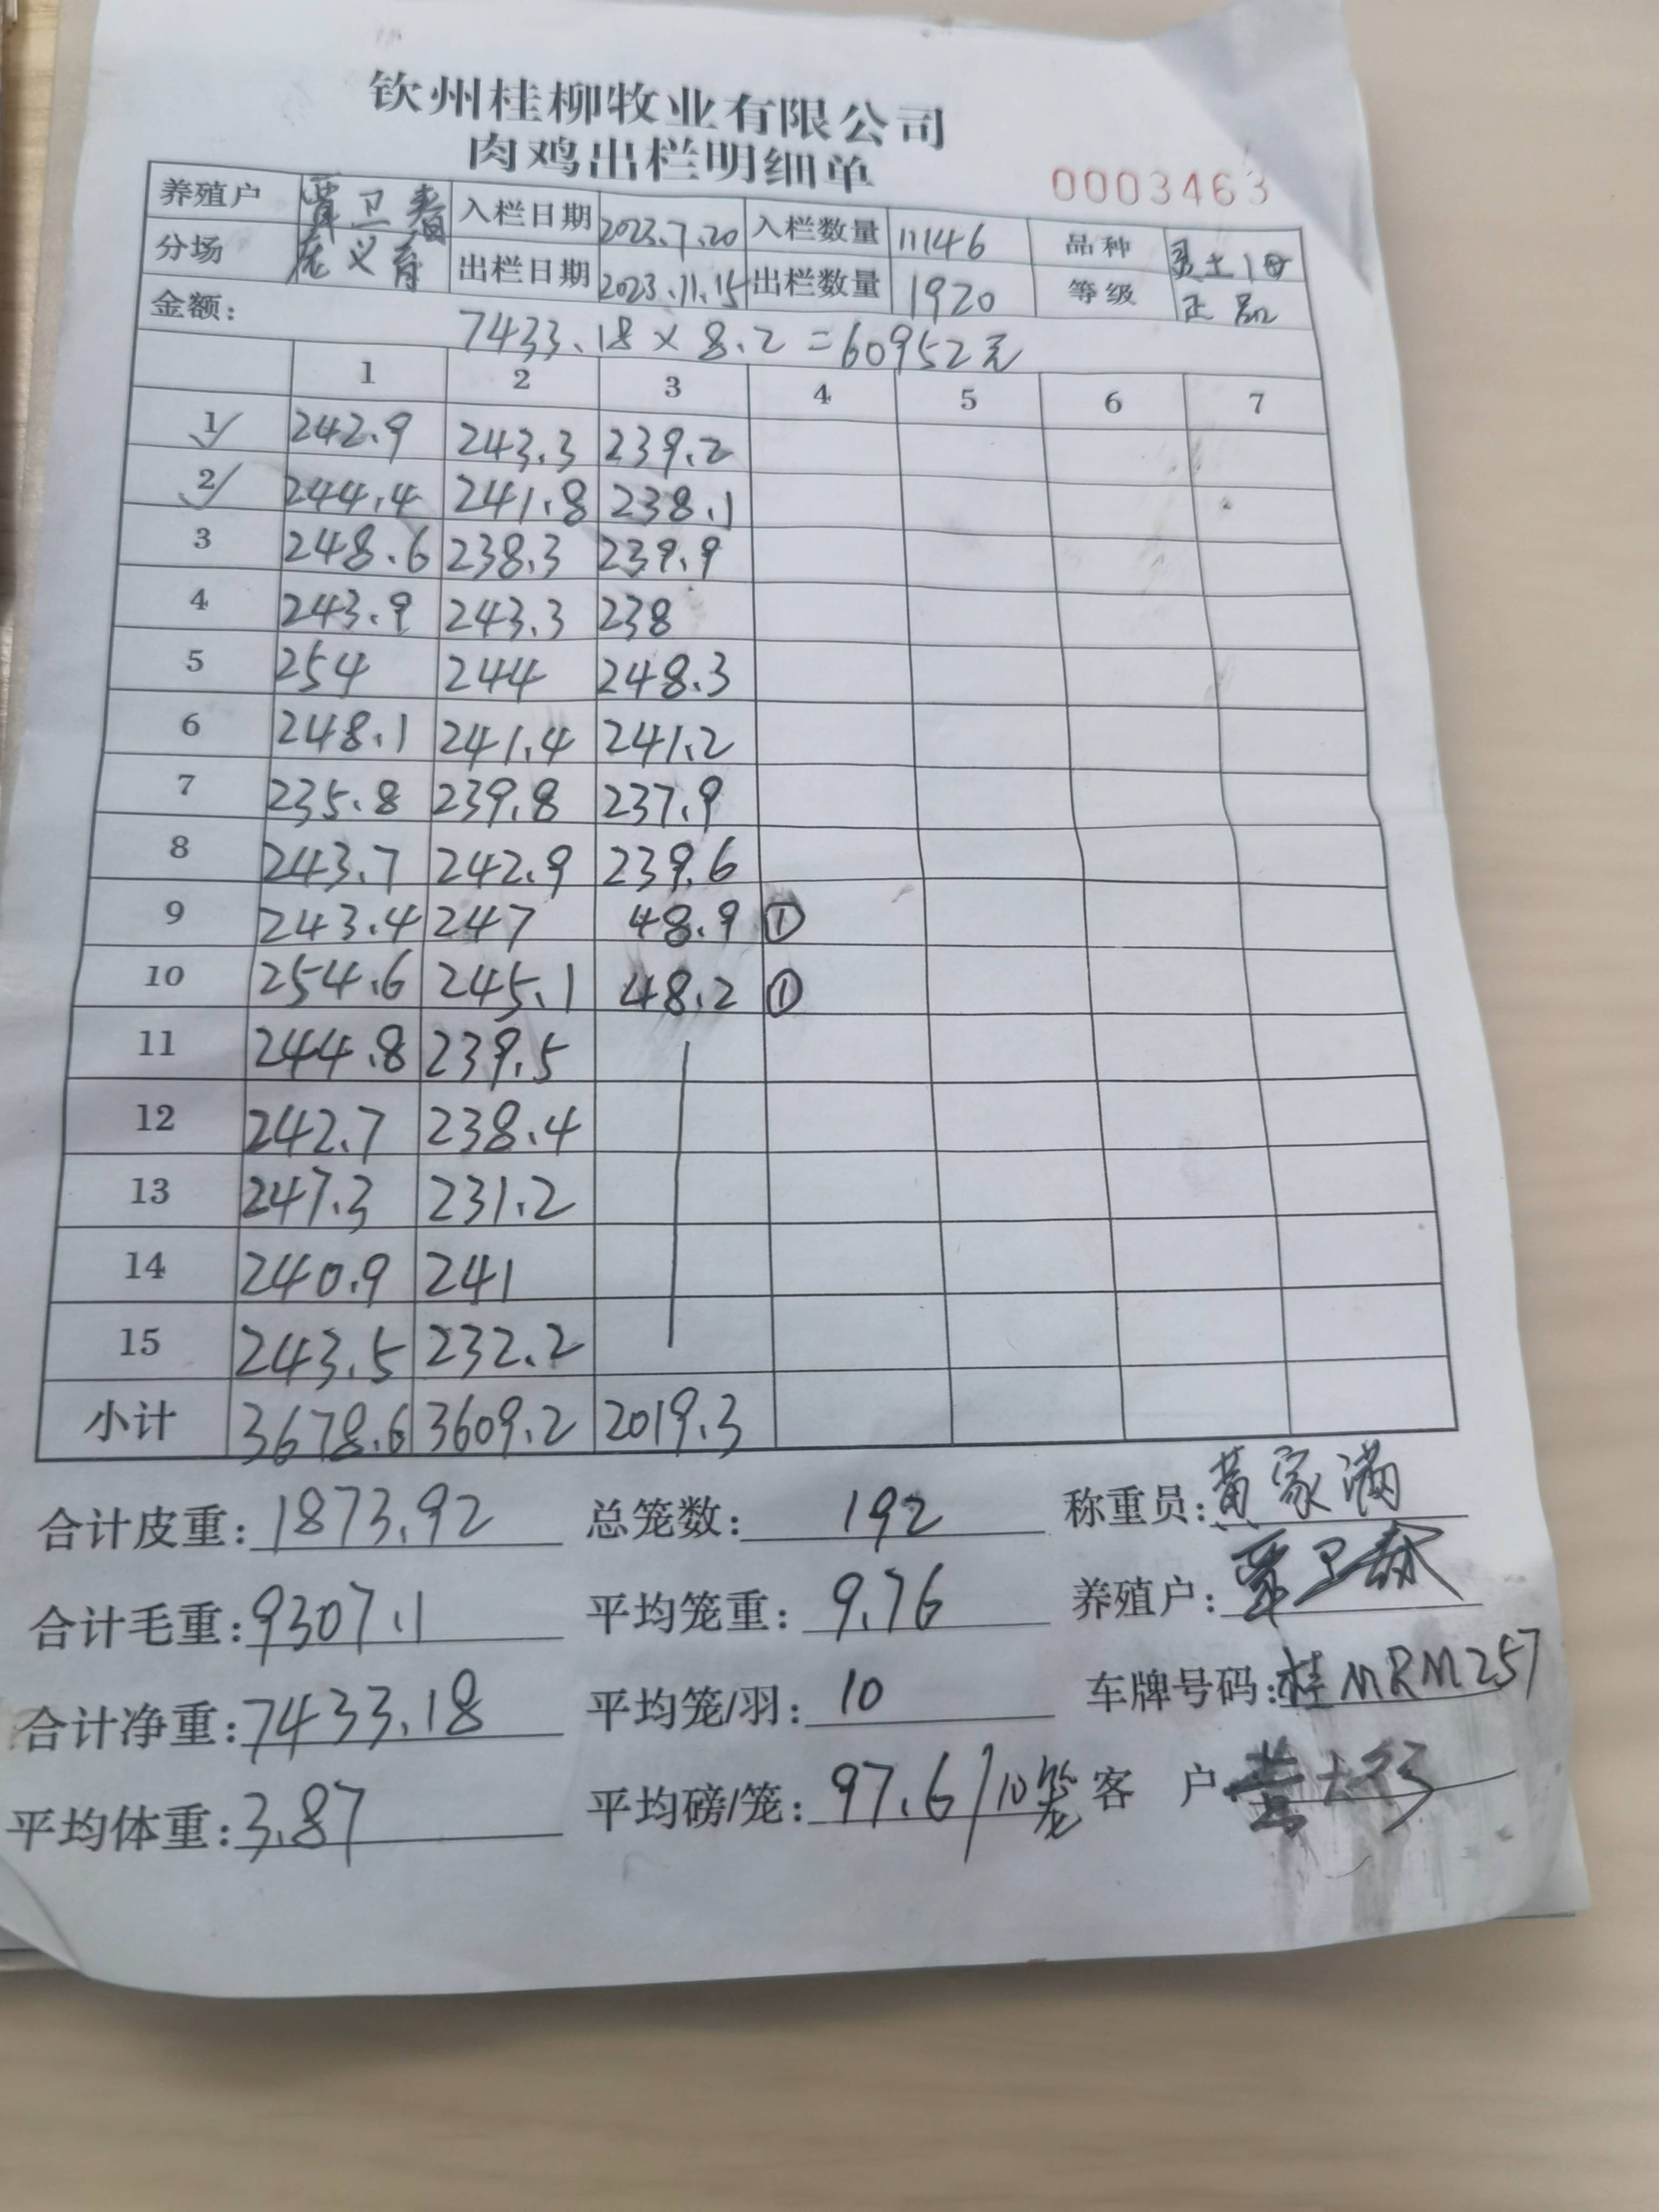 钦州桂柳牧业有限公司
肉鸡出栏明细单
0003463
养殖户 覃卫春 入栏日期 2023.7.20 入栏数量 11146 品种 土1母
分场 庞义育 出栏日期 2023.11.15 出栏数量 1920 等级 正品
金额: 7433.18×8.2=60952元
1 2 3 4 5 6 7
1✓ 242.9 243.3 239.2
2✓ 244.4 241.8 238.1
3 248.6 238.3 239.9
4 243.9 243.3 238
5 254 244 248.3
6 248.1 241.4 241.2
7 235.8 239.8 237.9
8 243.7 242.9 239.6
9 243.4 247 48.9 ①
10 254.6 245.1 48.2 ①
11 244.8 239.5
12 242.7 238.4
13 247.3 231.2
14 240.9 241
15 243.5 232.2
小计 3678.6 3609.2 2019.3
合计皮重: 1873.92 总笼数: 192 称重员: 黄家满
合计毛重: 9307.1 平均笼重: 9.76 养殖户: 覃卫春
合计净重: 7433.18 平均笼/羽: 10 车牌号码: 桂MRM257
平均体重: 3.87 平均磅/笼: 97.6/10笼 客户